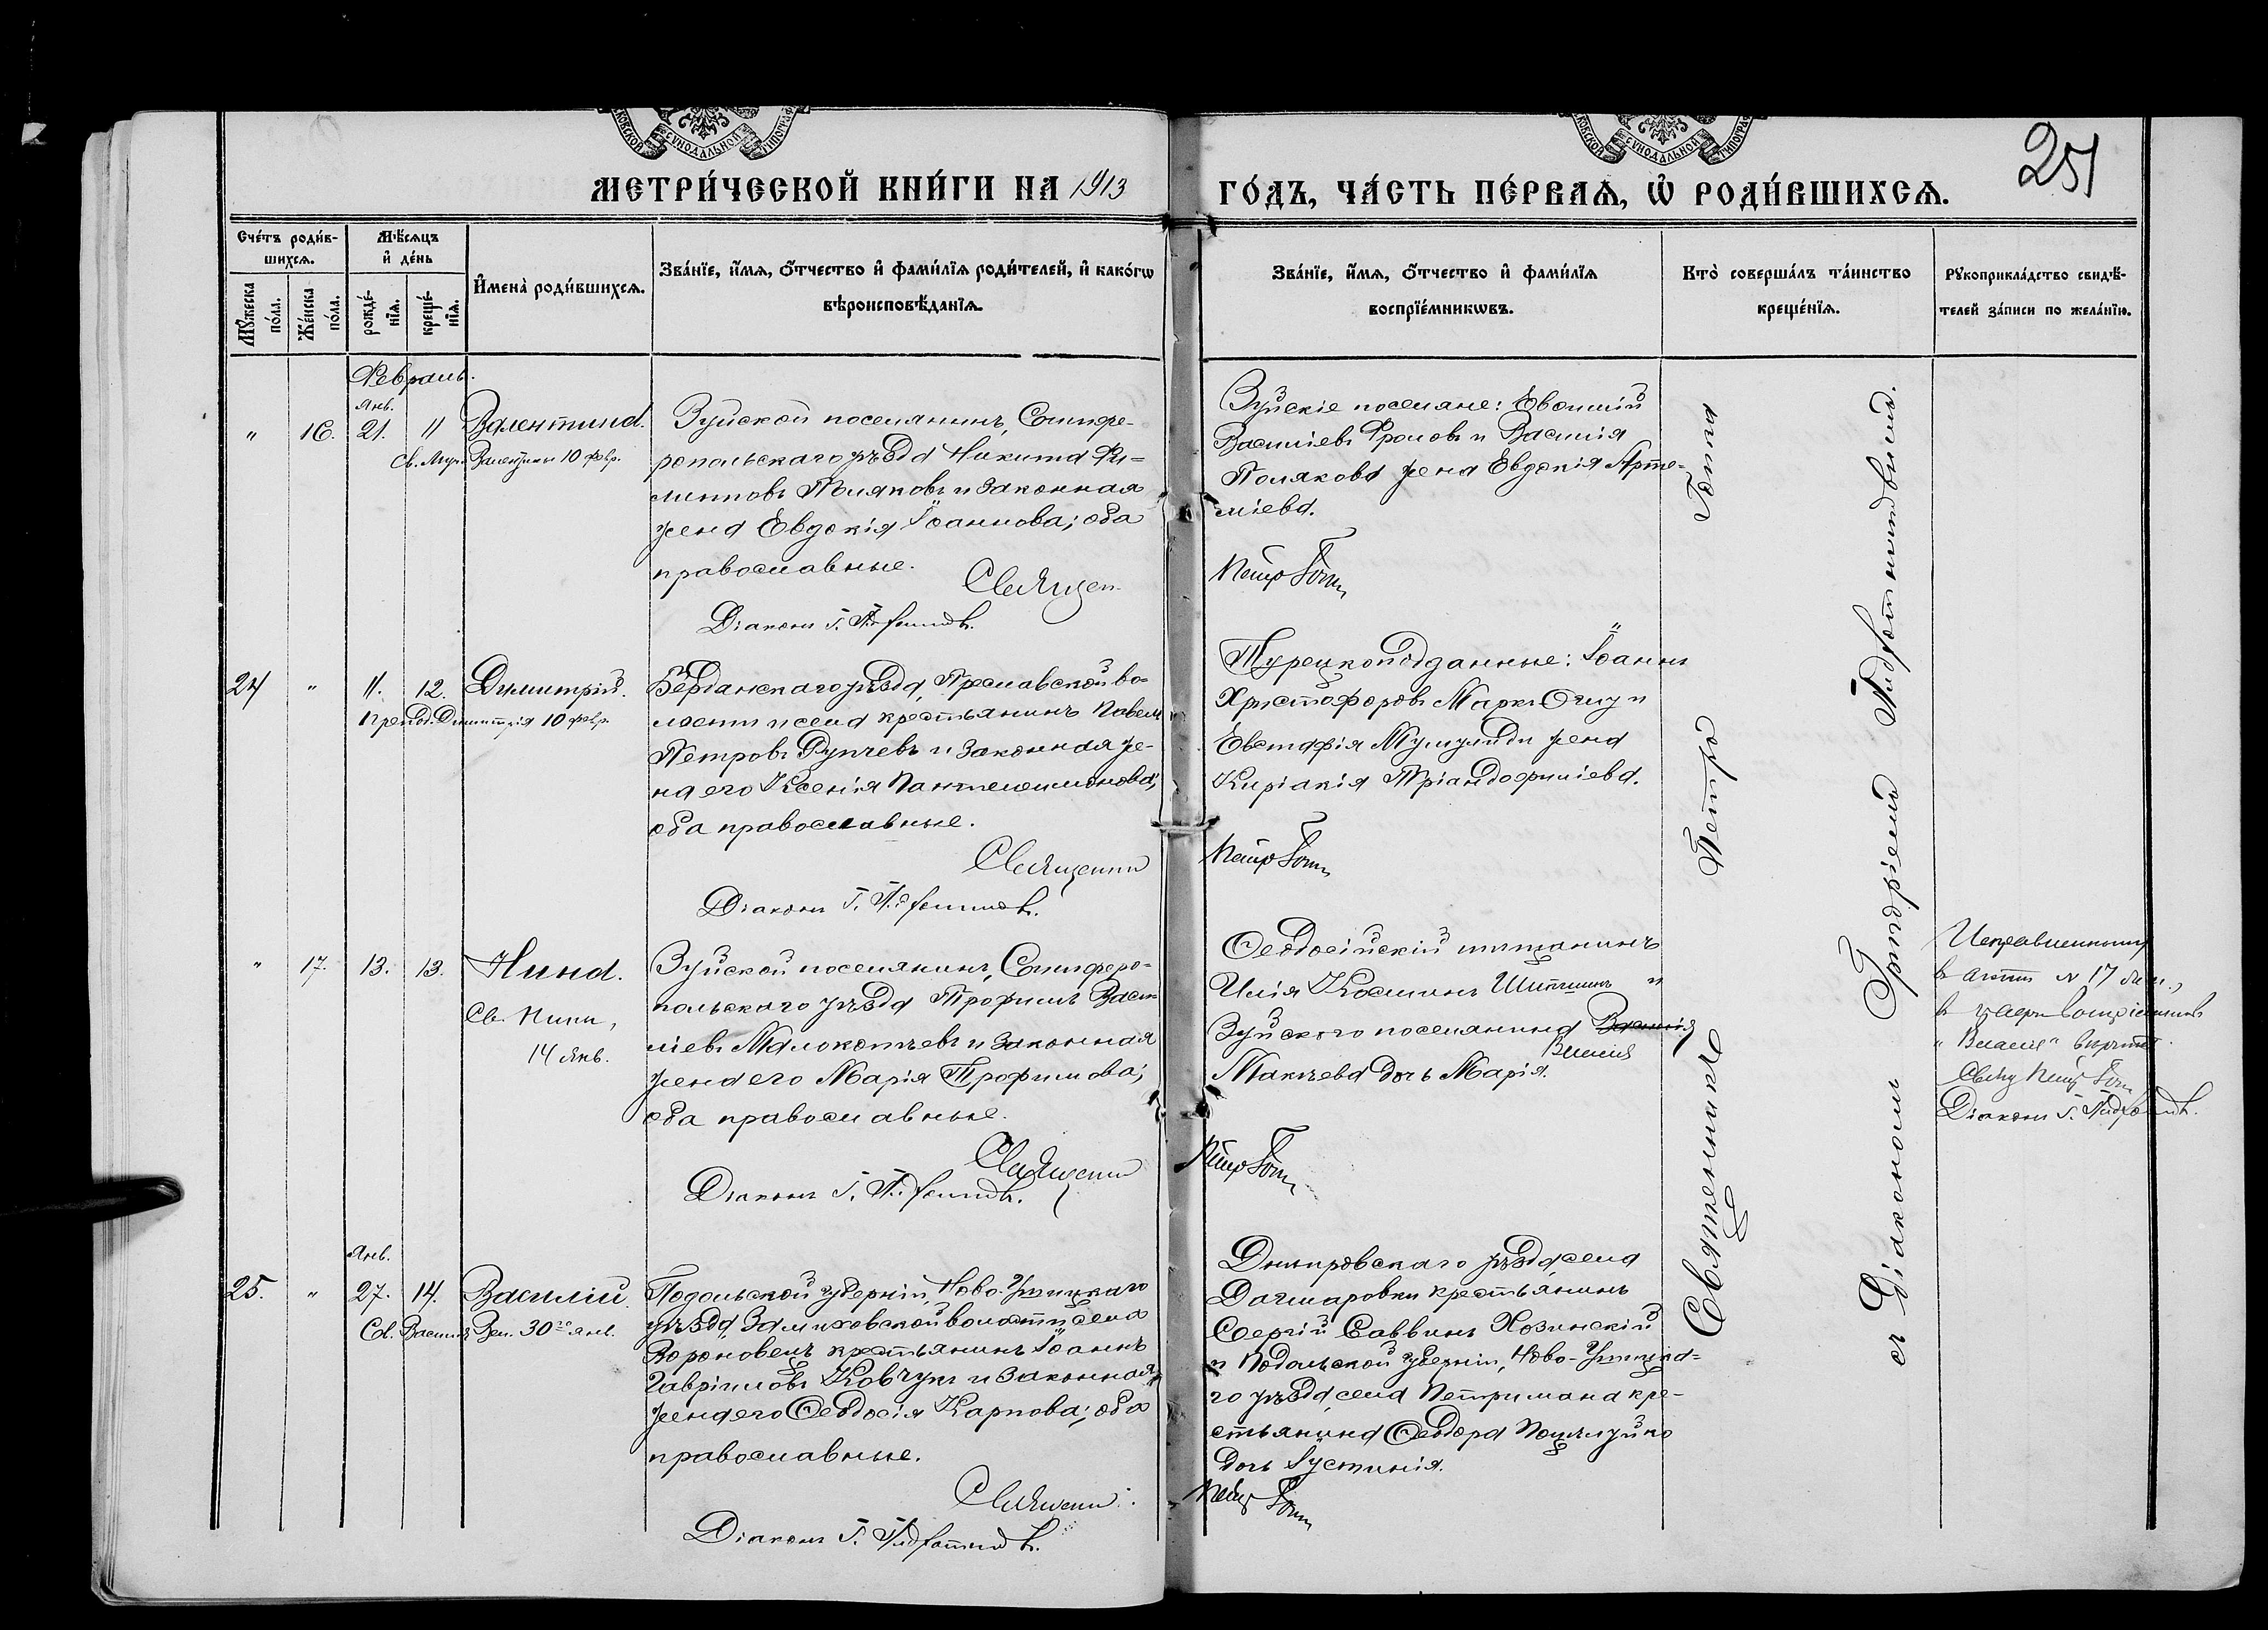 МЕТРИ́ЧЕСКОЙ КНИ́ГИ НА 1913
ГО́ДЪ, ЧА́СТЬ ПЕ́РВАѦ, Ѡ҆ РОДИ́ВШИХСѦ.
251
Сче́тъ роди́в-
шихсѧ.
Мꙋ́жеска
по́ла.
Же́нска
по́ла.
Мѣ́сѧцъ
и҆ де́нь
рожде́-
нїѧ.
креще́-
нїѧ.
И҆мена̀ роди́вшихсѧ.
Зва́нїе, и҆́мѧ, ѻ҆́тчество и҆ фами́лїѧ роди́телей, и҆ како́гѡ
вѣроисповѣ́данїѧ.
Зва́нїе, и҆́мѧ, ѻ҆́тчество и҆ фами́лїѧ
воспрїе́мникѡвъ.
Кто̀ соверша́лъ та́инство
креще́нїѧ.
Рꙋкоприкла́дство свидѣ́-
телей за́писи по жела́нїю.
Февраль.
Янв.
" 16. 21. 11 Валентина.
Св. Муч. Валентины 10 февр.
Зуйской поселянинъ, Симфе-
ропольскаго уѣзда Никита Фи-
липповъ Поляковъ и законная
жена Евдокія Іоаннова; оба
православные.
Священ
Діаконъ Г.
Зуйскіе поселяне: Евѳимій
Василіевъ Фроловъ и Василія
Полякова жена Евдокія Арте-
міева.
Петръ Гопп
24 " 11. 12. Димитрій.
Препод. Димитрія 10 февр.
Бердянскаго уѣзда, Преславской во-
лости и села крестьянинъ Павелъ
Петровъ Дунчевъ и законная же-
на его Ксенія Пантелеимонова;
оба православные.
Священни
Діаконъ Г.
Турецкоподданные: Іоаннъ
Христофоровъ и
Евстафія жена
Киріакія Тріандофиліева.
Петръ Гопп
" 17. 13. 13. Нина.
Св. Нины,
14 Янв.
Зуйской поселянинъ, Симферо-
польскаго уѣзда Трофимъ Васи-
ліевъ и законная
жена его Марія Трофимова;
оба православные.
Священни
Діаконъ Г.
Ѳеодосійскій мѣщанинъ
Илія Косминъ и
Зуйскаго поселянина Василія
Власія
Макѣева дочь Марія.
Петръ Гопп
Исправленному
въ актѣ № 17
"Власія" вѣрить.
Свящ Петръ Гопп
Діаконъ Г.
Янв.
25. " 27. 14. Василій.
Св. Василія Вел. 30го янв.
Подольской губерніи, Ново-Ушицкаго
уѣзда, Замиховской волости, села
Вороновецъ крестьянинъ Іоаннъ
Гавріиловъ Ковчукъ и законная
жена его Ѳеодосія Карпова; оба
православные.
Священи
Діаконъ Г.
Днѣпровскаго уѣзда, села
Дагмаровки крестьянинъ
Сергій Саввинъ Хозинскій
и Подольской губерніи, Ново-Ушицка-
го уѣзда, села Петримана кре-
стьянина Ѳеодора
дочь Іустинія.
Петръ Гопп
Священникъ Петръ Гопп
съ Діакономъ Григоріемъ